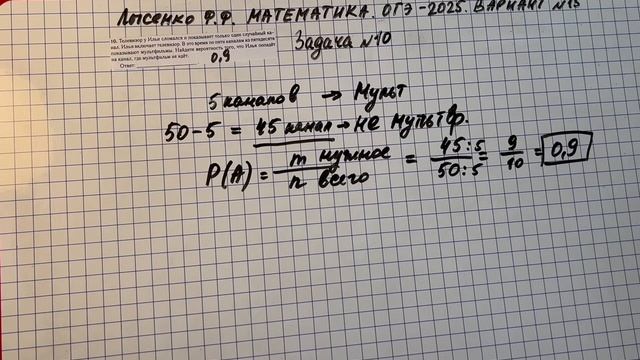 Лысенко Ф.Ф. МАТЕМАТИКА. ОГЭ-2025. ВАРИАНТ №13
10. Телевизор у Ильи сломался и показывает только один случайный ка-
нал. Илья включает телевизор. В это время по пяти каналам из пятидесяти
показывают мультфильмы. Найдите вероятность того, что Илья попадёт
на канал, где мультфильм не идёт.
Ответ: 0,9
Задача №10
5 каналов → Мульт
50-5 = 45 канал → не мультф.
P(A) = m нужное / n всего = 45:5 / 50:5 = 9/10 = 0,9